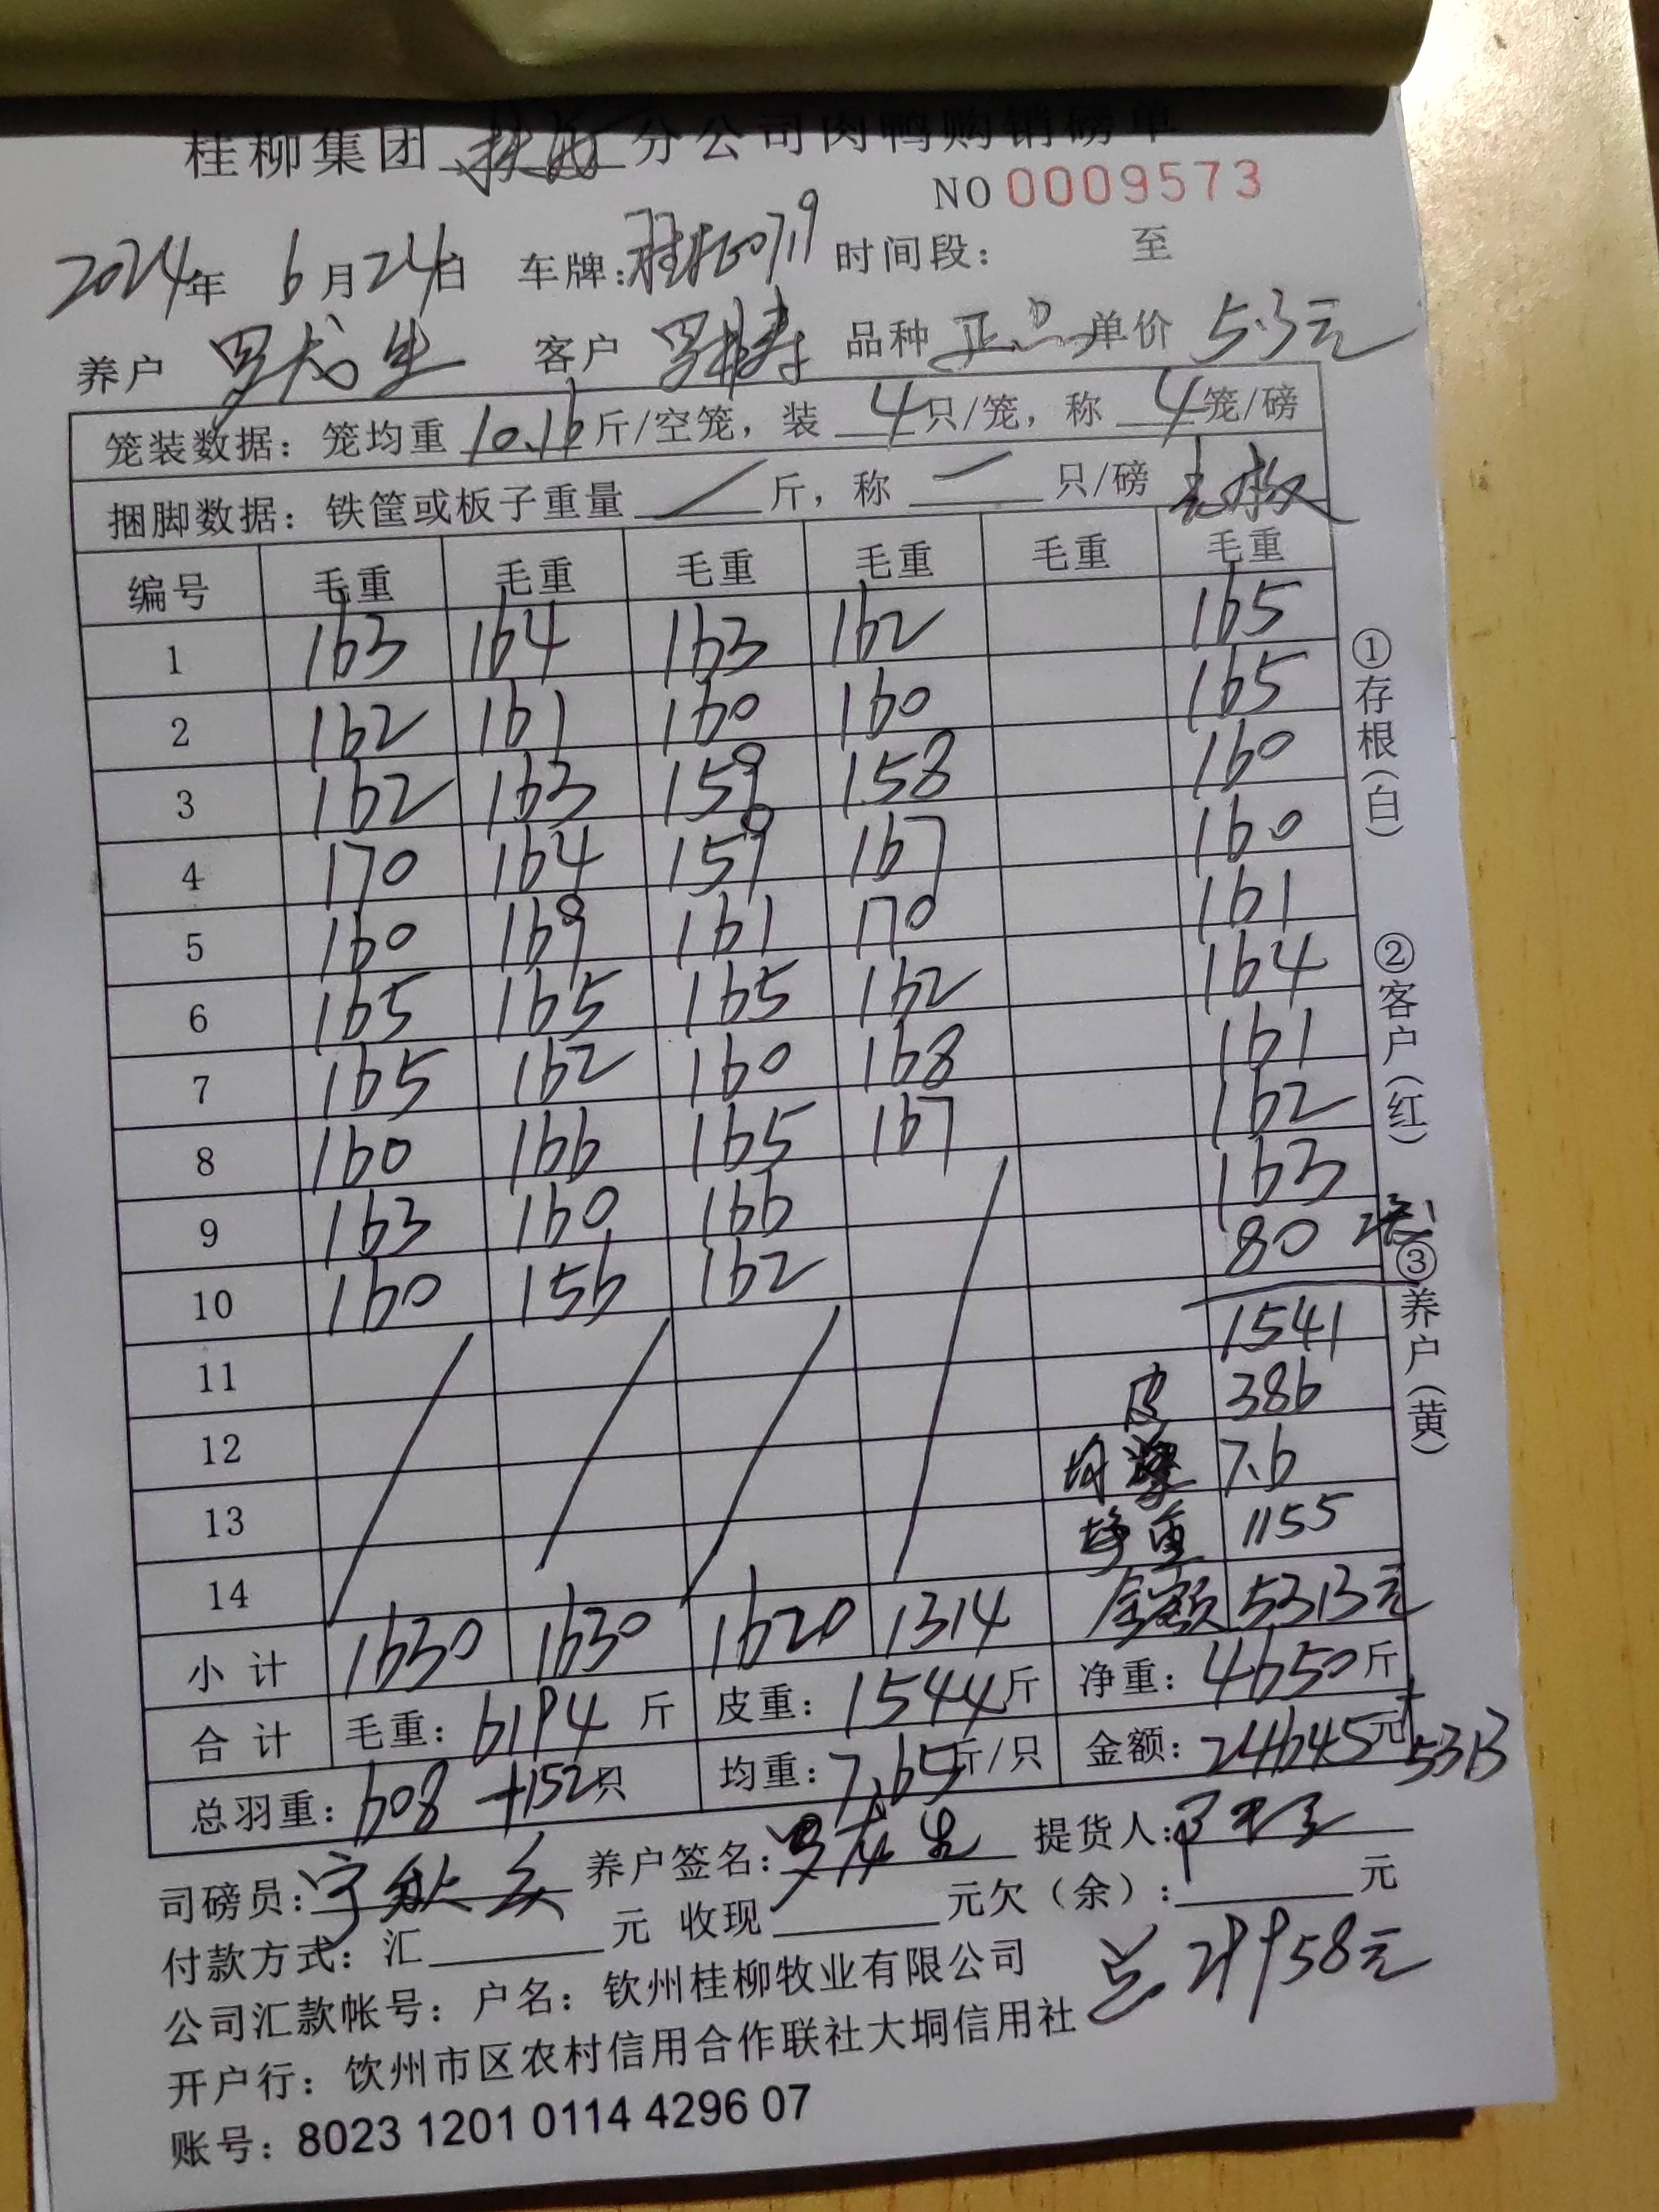 桂柳集团 分公司肉鸭购销磅单
NO 0009573
2024年 6月24日 车牌: 时间段: 至
养户 罗龙生 客户 罗 品种 正品 单价 5.3元
笼装数据: 笼均重 10.16 斤/空笼, 装 4 只/笼, 称 4 笼/磅
捆脚数据: 铁筐或板子重量 / 斤, 称 一 只/磅
编号 毛重 毛重 毛重 毛重 毛重 毛重
1 163 164 163 162 165
2 162 161 160 160 165
3 162 163 159 158 160
4 170 164 159 167 160
5 160 169 161 170 161
6 165 165 165 162 164
7 165 162 160 168 161
8 160 166 165 167 162
9 163 160 166 163
10 160 156 162 80
11 1541
12 皮 386
13 均 7.6
14 净重 1155
小计 1630 1630 1620 1314 金额 5313元
合计 毛重: 6194 斤 皮重: 1544斤 净重: 4650斤
总羽重: 608 +152只 均重: 7.65斤/只 金额: 24645元+5313
司磅员: 宁 养户签名: 罗龙生 提货人:
付款方式: 汇 元 收现 元欠(余): 元
公司汇款帐号: 户名: 钦州桂柳牧业有限公司
总 29958元
开户行: 钦州市区农村信用合作联社大垌信用社
账号: 8023 1201 0114 4296 07
①存根(白) ②客户(红) ③养户(黄)